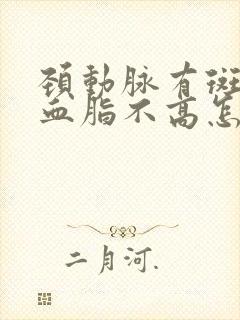 頚動脉有斑
血脂不高怎
二月河.